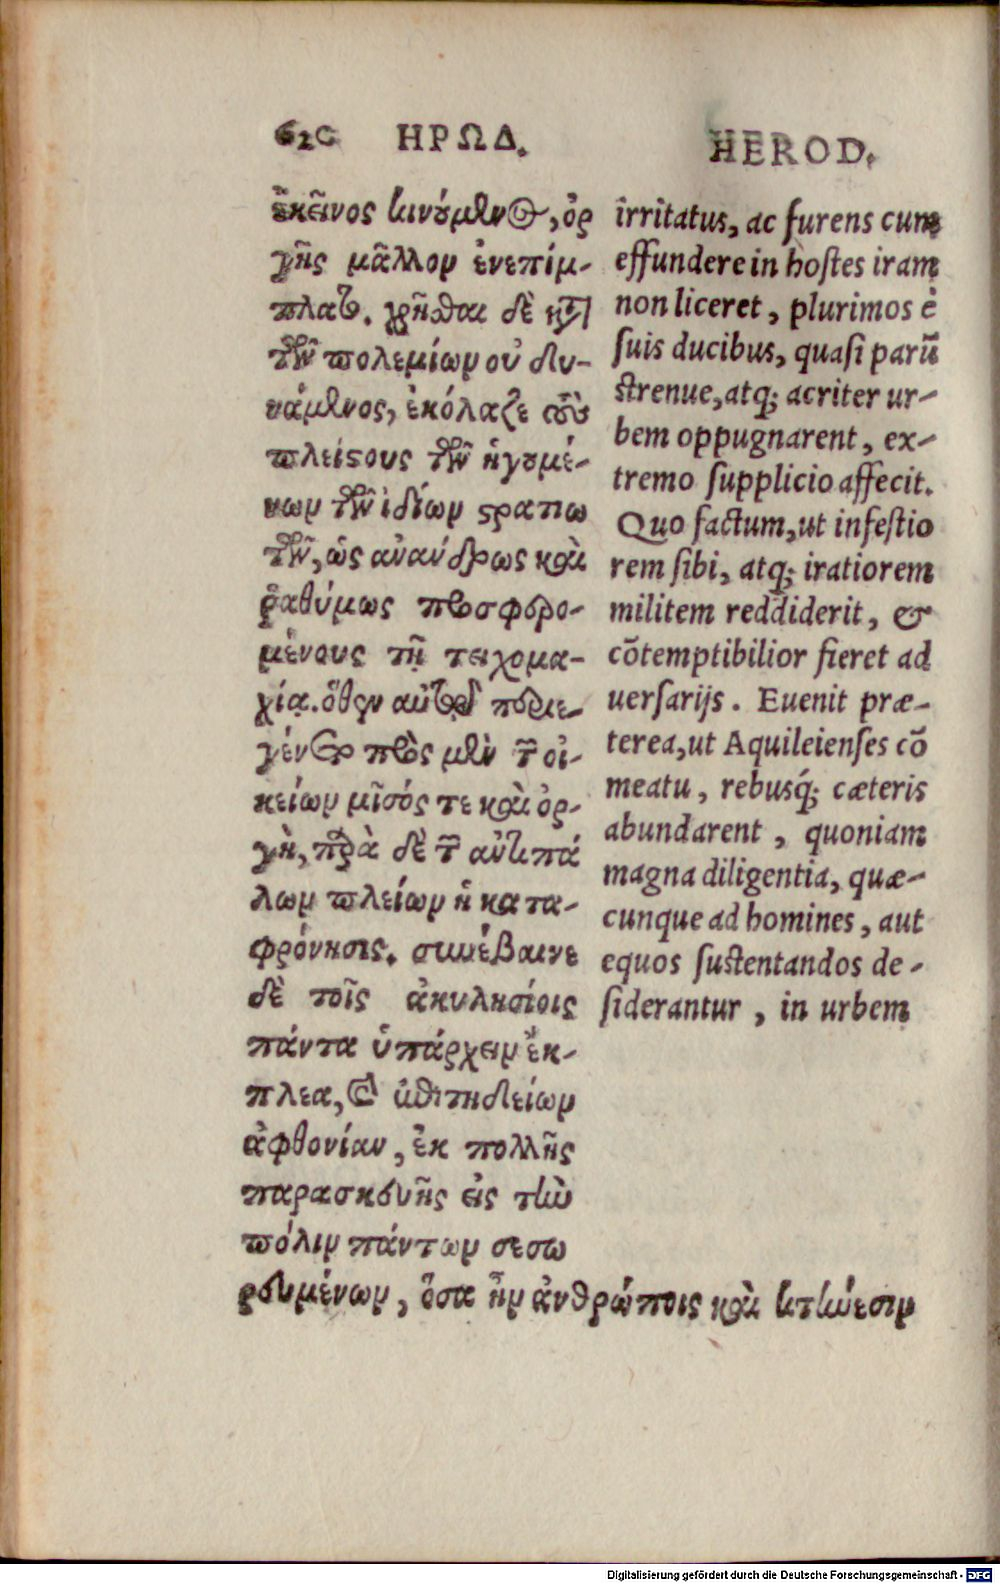 620 ΗΡΩΔ.
ἐκεῖνος κινούμενος, ὀρ
γῆς μᾶλλον ἐνεπίμ-
πλατο. χρῆσθαι δὲ κατὰ
τῶν πολεμίων οὐ δυ-
νάμενος, ἐκόλαζε τοὺς
πλείστους τῶν ἡγουμέ-
νων τῶν ἰδίων στρατιω
τῶν, ὡς ἀνάνδρως καὶ
ῥαθύμως προσφερο-
μένους τῇ τειχομα-
χίᾳ. ὅθεν αὐτῷ περιε-
γένετο πρὸς μὲν τῶν οἰ-
κείων μῖσός τε καὶ ὀρ-
γὴ, παρὰ δὲ τῶν ἀντιπά
λων πλείων ἡ κατα-
φρόνησις. συνέβαινε
δὲ τοῖς ἀκυλησίοις
πάντα ὑπάρχειν ἔκ-
πλεα, καὶ ἐπιτηδείων
ἀφθονίαν, ἐκ πολλῆς
παρασκευῆς εἰς τὴν
πόλιν πάντων σεσω
ρευμένων, ὅσα ἦν ἀνθρώποις καὶ κτήνεσιν
HEROD.
irritatus, ac furens cum
effundere in hostes iram
non liceret, plurimos è
suis ducibus, quasi parū
strenue, atq; acriter ur-
bem oppugnarent, ex-
tremo supplicio affecit.
Quo factum, ut infestio
rem sibi, atq; iratiorem
militem reddiderit, &
cōtemptibilior fieret ad
uersarijs. Euenit præ-
terea, ut Aquileienses cō
meatu, rebusq́; cæteris
abundarent, quoniam
magna diligentia, quæ-
cunque ad homines, aut
equos sustentandos de-
siderantur, in urbem
Digitalisierung gefördert durch die Deutsche Forschungsgemeinschaft - DFG